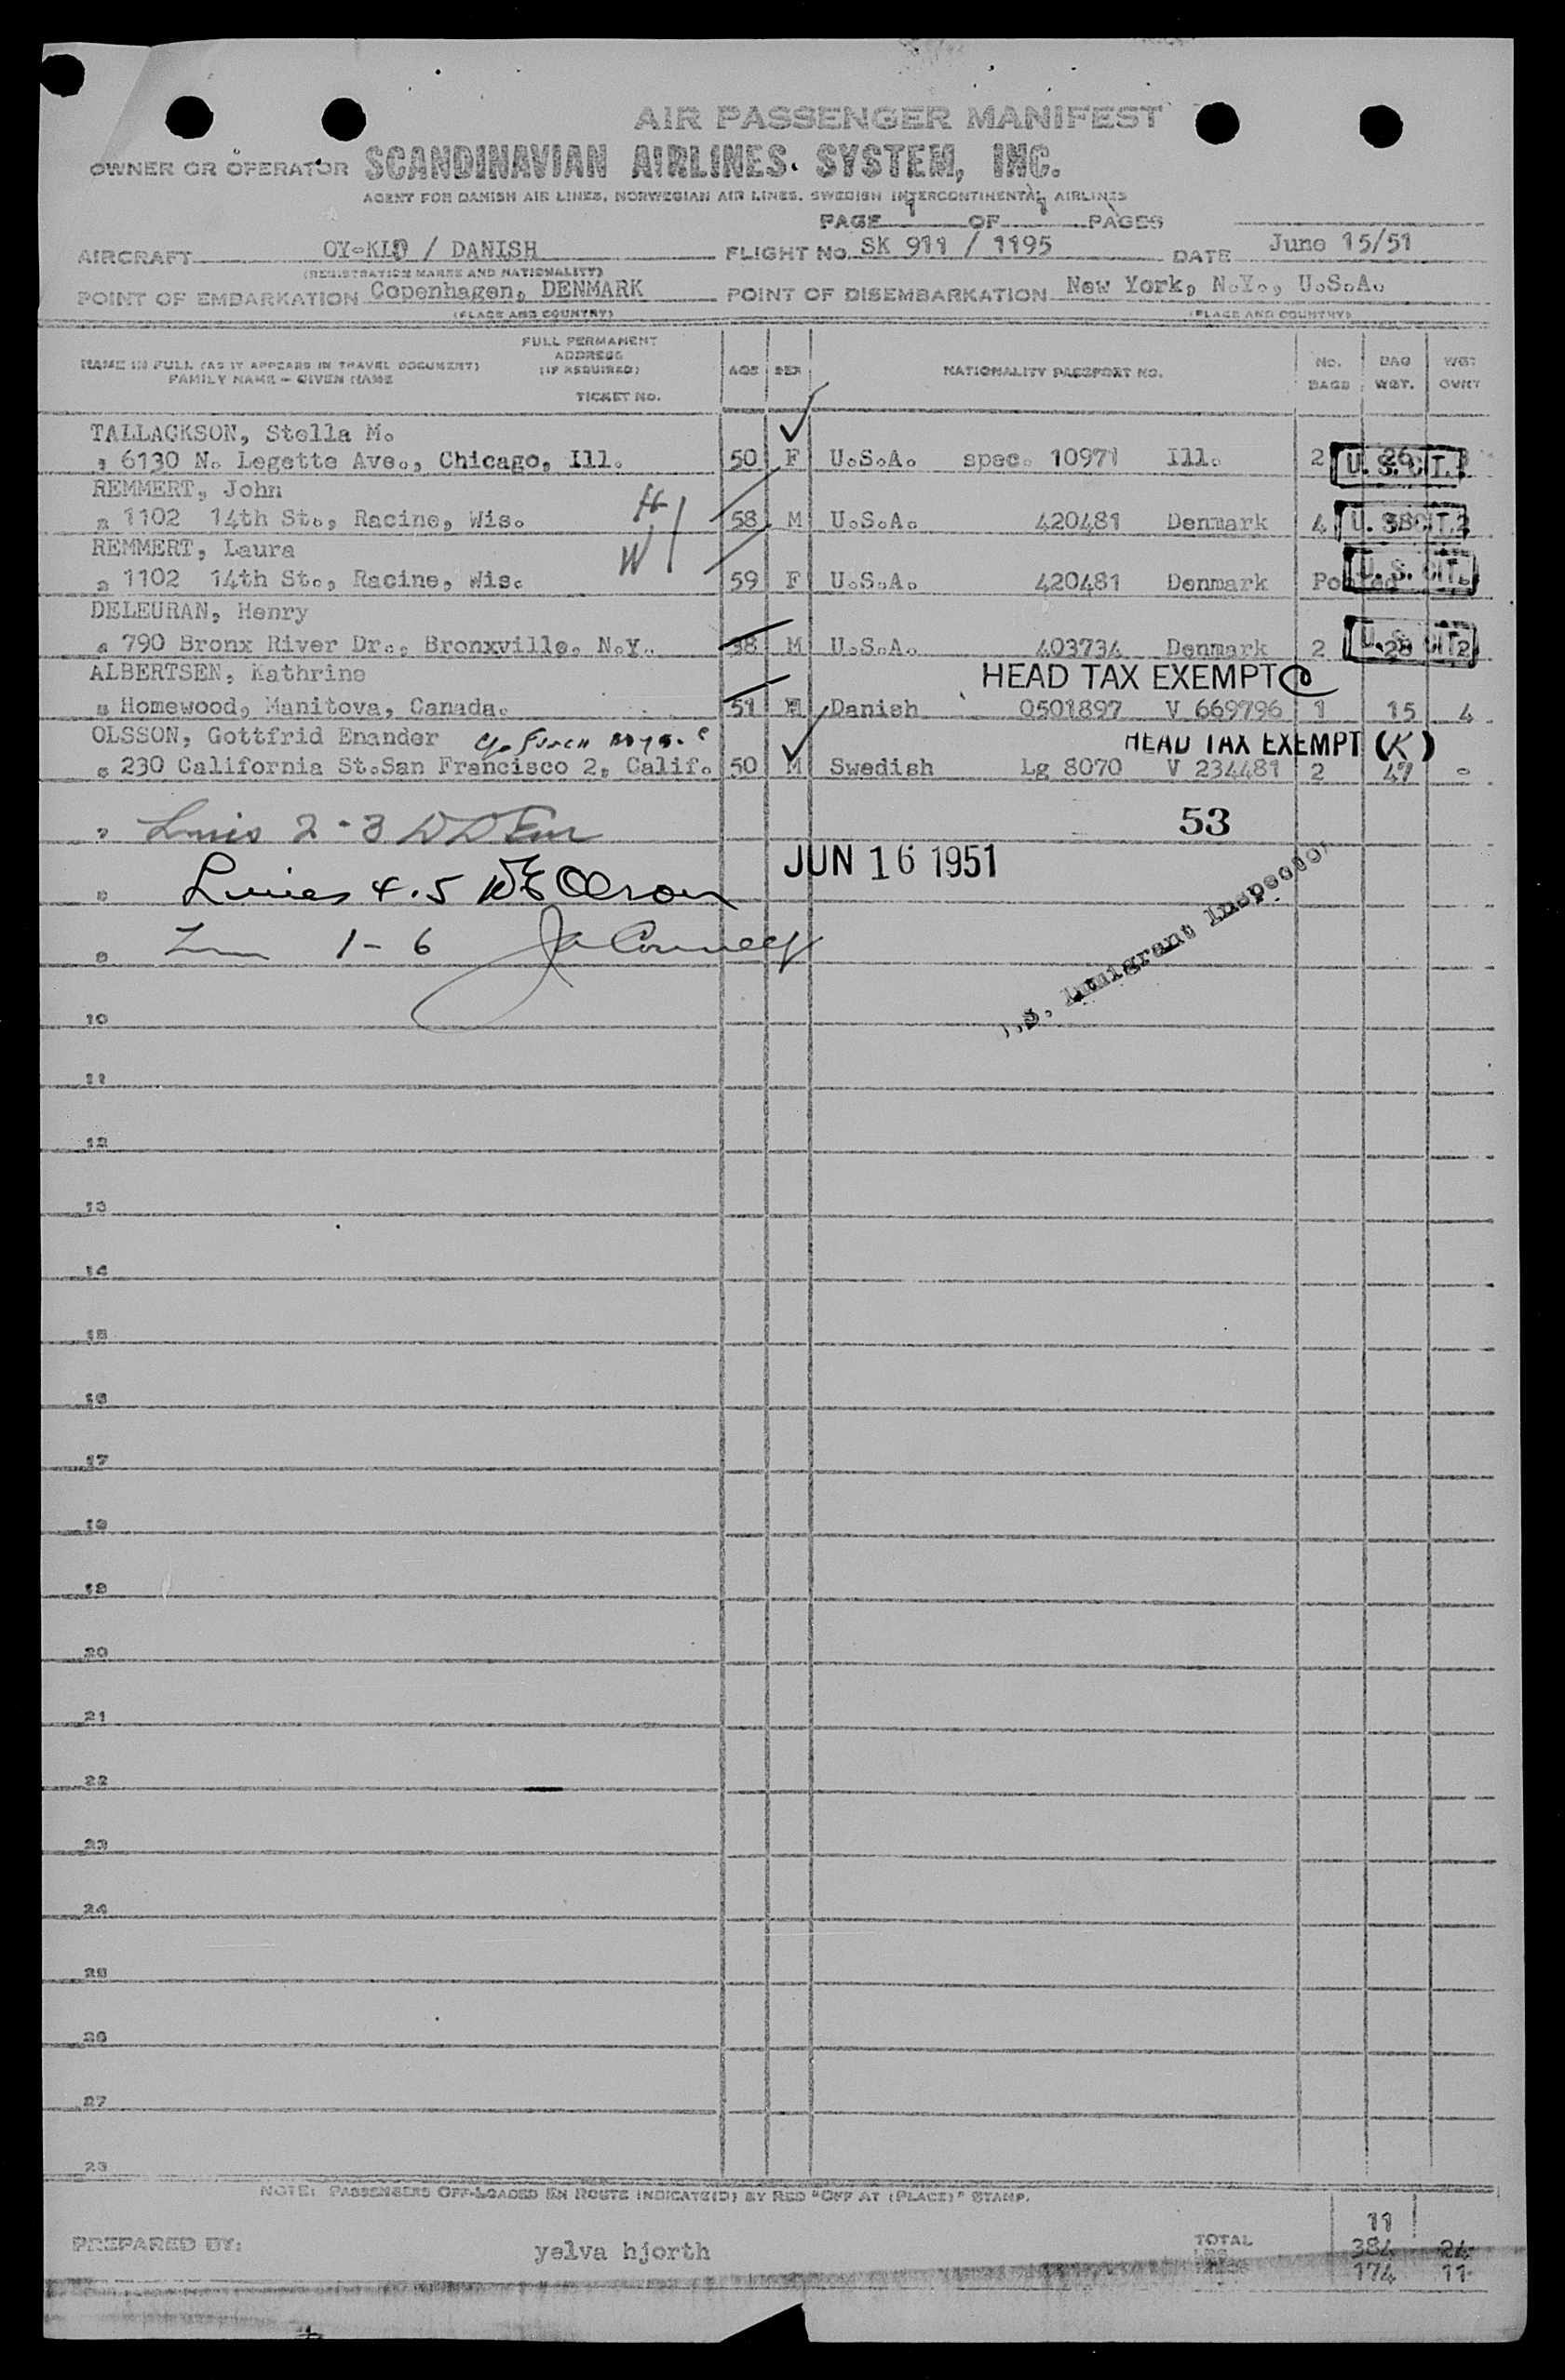 AIR PASSENGER MANIFEST
OWNER OR OPERATOR SCANDINAVIAN AIRLINES SYSTEM, INC.
AGENT FOR DANISH AIR LINES, NORWEGIAN AIR LINES, SWEDISH INTERCONTINENTAL AIRLINES
PAGE 1 OF 1 PAGES
AIRCRAFT OY-KLD / DANISH FLIGHT NO. SK 911 / 1195 DATE June 15/51
(REGISTRATION MARKS AND NATIONALITY)
POINT OF EMBARKATION Copenhagen, DENMARK POINT OF DISEMBARKATION New York, N.Y., U.S.A.
(PLACE AND COUNTRY) (PLACE AND COUNTRY)
NAME IN FULL (AS IT APPEARS IN TRAVEL DOCUMENT) FAMILY NAME - GIVEN NAME FULL PERMANENT ADDRESS (IF REQUIRED) TICKET NO. AGE SEX NATIONALITY PASSPORT NO. NO. BAGS BAG WGT. WGT OVNT
TALLACKSON, Stella M.
6130 N. Legette Ave., Chicago, Ill. 50 F U.S.A. spec. 10971 Ill. 2 26 U.S. CIT.
REMMERT, John H
1102 14th St., Racine, Wis. 58 M U.S.A. 420481 Denmark 4 U.S. CIT. 2
REMMERT, Laura W
1102 14th St., Racine, Wis. 59 F U.S.A. 420481 Denmark Pooled U.S. CIT.
DELEURAN, Henry
790 Bronx River Dr., Bronxville, N.Y. 38 M U.S.A. 403734 Denmark 2 28 U.S. CIT. 2
ALBERTSEN, Kathrine HEAD TAX EXEMPT C
Homewood, Manitova, Canada. 51 Danish 0501897 V 669796 1 15 4
OLSSON, Gottfrid Enander HEAD TAX EXEMPT (K)
6 230 California St.San Francisco 2, Calif. 50 M Swedish Lg 8070 V 234481 2 47 -
7 2-3 53
JUN 16 1951
8 Lines 4.5 Olson
9 1-6 Immigrant Inspector
10
11
12
13
14
15
16
17
18
19
20
21
22
23
24
25
26
27
28
NOTE: PASSENGERS OFF-LOADED EN ROUTE INDICATE(D) BY RED "OFF AT (PLACE)" STAMP.
11
PREPARED BY: yelva hjorth TOTAL LBS 384 24
174 11